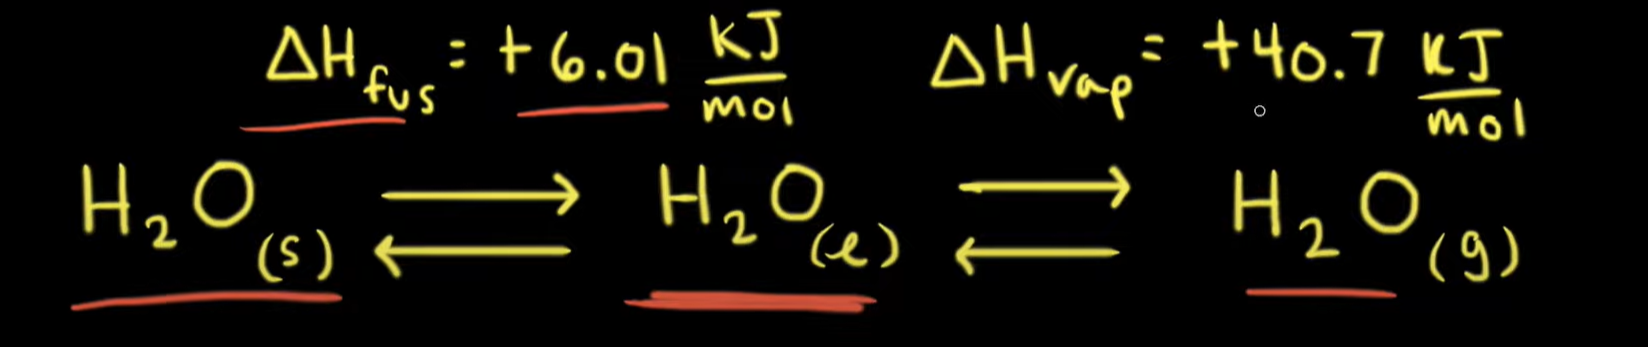 ΔH_fus = +6.01 kJ/mol ΔH_vap = +40.7 kJ/mol
H₂O(s) ⇄ H₂O(l) ⇄ H₂O(g)